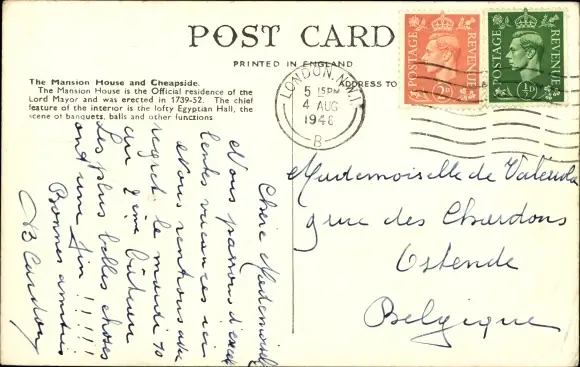 POST CARD
PRINTED IN ENGLAND
ADDRESS TO
The Mansion House and Cheapside.
The Mansion House is the Official residence of the
Lord Mayor and was erected in 1739-52. The chief
feature of the interior is the lofty Egyptian Hall, the
scene of banquets, balls and other functions.
LONDON. N.W.1
5 15PM
4 AUG
1946
B
POSTAGE REVENUE
2D
POSTAGE REVENUE
½D
Mademoiselle de
9 rue des Chardons
Ostende
Belgique
Chère Mademoiselle
Nous passons d'excel
lentes vacances ici
Nous rentrons avec
regret le mardi 20
au 2ème
Les plus belles choses
ont une fin !!!!!
Bonnes amitiés